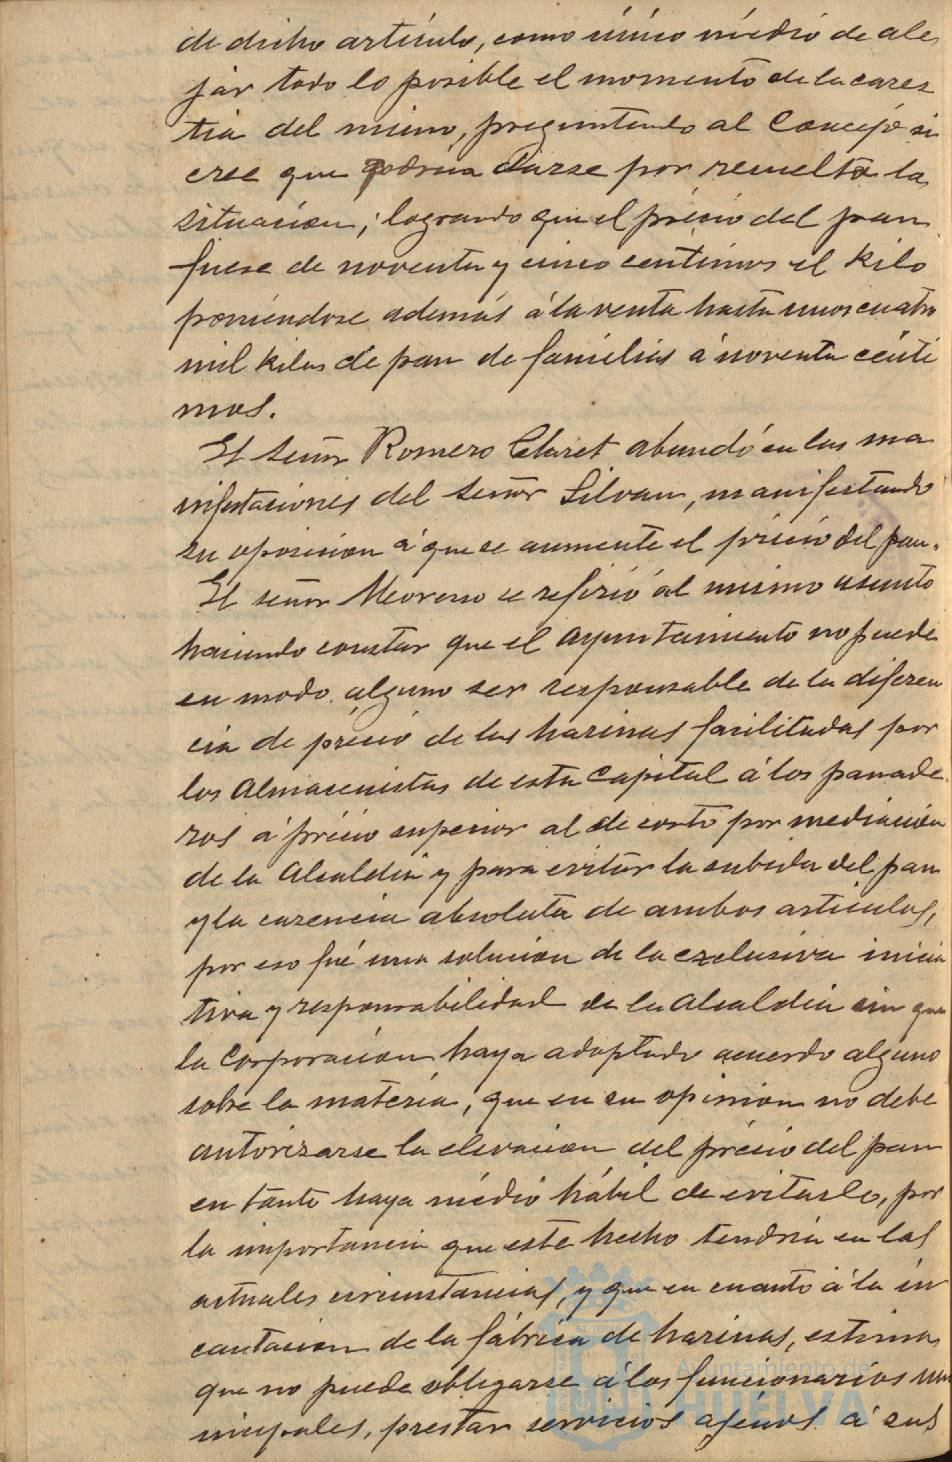 de dicho artículo, como único médio de ale
jar todo lo posible el momento de la cares
tia del mismo, preguntando al Concejo si
cree que podria darse por resuelta la
situacion, logrando que el précio del pan
fuese de noventa y cinco centimos el kilo
poniéndose además á la venta hasta unos cuatro
mil kilos de pan de familias á noventa cénti
mos.
El Señor Romero Claret abundó en las ma
nifestaciones del Señor Silvan, manifestando
su oposicion á que se aumente el précio del pan.
El señor Moreno se refirió al mismo asunto
haciendo constar que el Ayuntamiento no puede
en modo alguno ser responsable de la diferen
cia de précio de las harinas facilitadas por
los Almacenistas de esta Capital á los panade
ros á précio superior al de costo por mediación
de la Alcaldia y para evitar la subida del pan
y la carencia absoluta de ambos articulos,
por eso fué una solucion de la exclusiva inicia
tiva y responsabilidad de la Alcaldia sin que
la Corporacion haya adoptado acuerdo alguno
sobre la matéria, que en su opinion no debe
autorizarse la elevacion del précio del pan
en tanto haya médio hábil de evitarlo, por
la importancia que este hecho tendria en las
actuales circunstancias, y que en cuanto á la in
cautacion de la fábrica de harinas, estima
que no puede obligarse á los funcionarios mu
nicipales, prestar servicios ajenos á sus
Ayuntamiento de
HUELVA